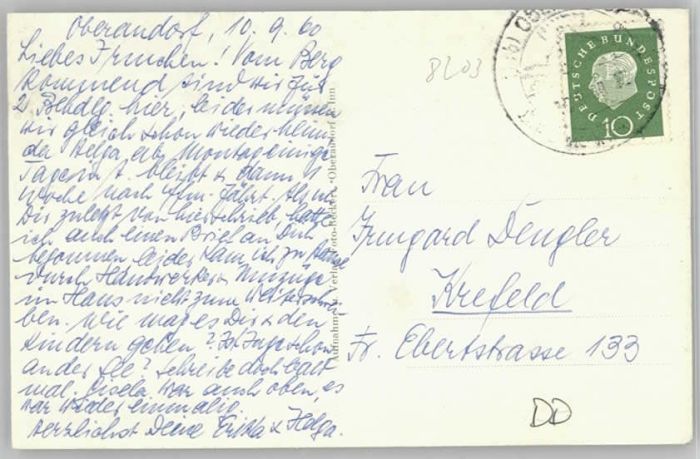 Oberaudorf, 10.9.60
Liebes Irmchen! Vom Berg
kommend sind wir für
2 Behdlg hier, leider müssen
wir gleich schon wieder heim
da Helga, ab Montag einige
Tage in bleibt & dann 1
Woche nach fährt. Als ich
Dir zuletzt von hier schrieb, hatte
ich auch einen Brief an Dich
begonnen leider kam ich zu Hause
durch Handwerker & Umzüge
im Haus nicht zum Weiterschrei-
ben. Wie mag es Dir & den
Kindern gehen? Ist Inge schon
an der See? Schreibe doch bald
mal. Gisela war auch oben, es
war wieder einmalig.
Herzlichst Deine Erika & Helga.
8203
DEUTSCHE BUNDESPOST
10
Frau
Irmgard Dengler
Krefeld
Fr. Ebertstrasse 133
DD